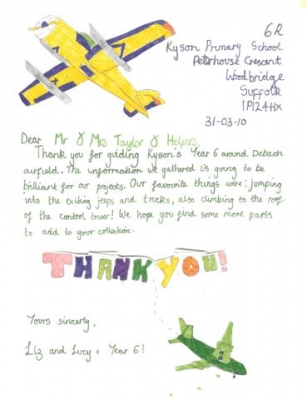 6R
Kyson Primary School
Peterhouse Crescent
Woodbridge
Suffolk
IP12 4HX
31-03-10
Dear Mr & Mrs Taylor & Helpers,
Thank you for guiding Kyson's Year 6 around Debach
airfield. The information we gathered is going to be
brilliant for our projects. Our favourite things were: jumping
into the exiting jeeps and trucks, also climbing to the roof
of the control tower! We hope you find some more parts
to add to your collection.
THANK YOU!
Yours sincerely,
Liz and Lucy + Year 6!